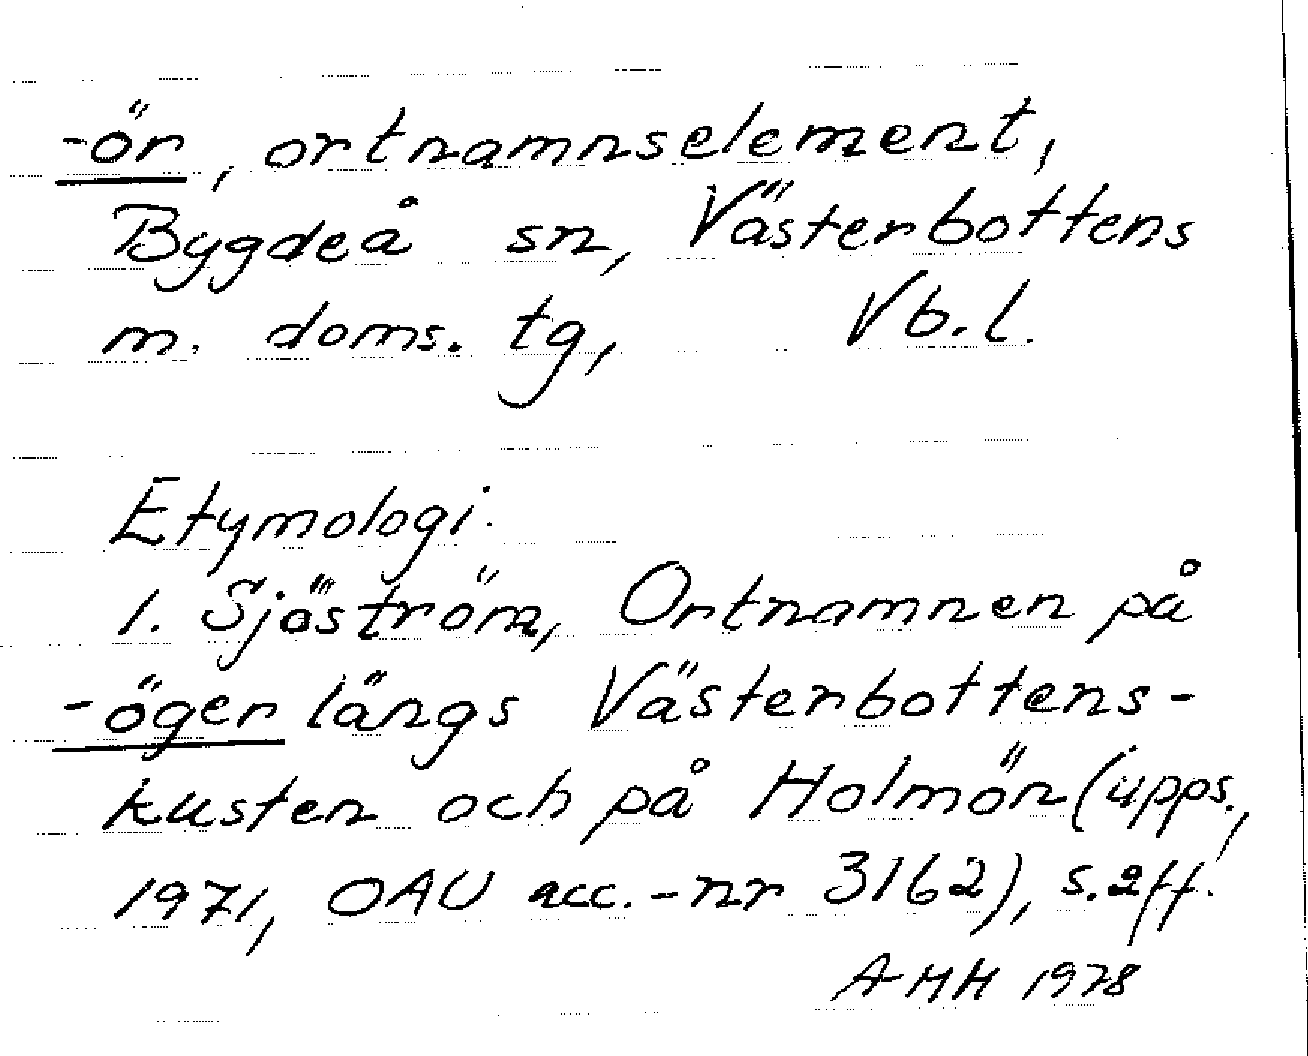 -ör, ortnamnselement,
Bygdeå sn, Västerbottens
m. doms. tg, Vb.l.
Etymologi.
1. Sjöström, Ortnamnen på
-öger längs Västerbottens-
kusten och på Holmön (upps.,
1971, OAU acc.-nr 3162), s.2ff.
AHH 1978